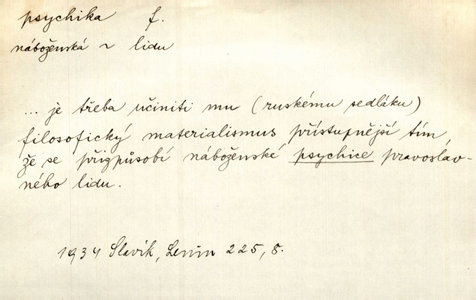 psychika f.
náboženská ~ lidu
... je třeba učiniti mu (ruskému sedláku)
filosofický materialismus přístupnější tím,
že se přizpůsobí náboženské psychice pravoslav-
ného lidu.
1934 Slavík, Lenin 225, 8.